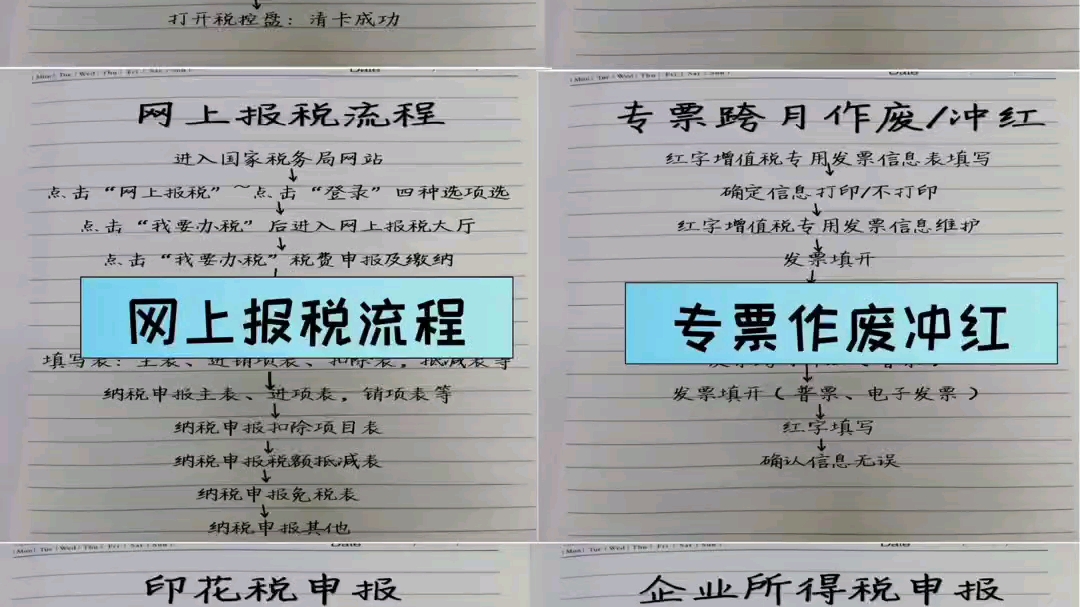 打开税控盘：清卡成功
Mon Tue Wed Thu Fri Sat Sun
Date
网上报税流程
进入国家税务局网站
点击“网上报税”~点击“登录”四种选项选
点击“我要办税”后进入网上报税大厅
点击“我要办税”税费申报及缴纳
网上报税流程
填写表：主表、进销项表、扣除表，抵减表等
纳税申报主表、进项表，销项表等
纳税申报扣除项目表
纳税申报税额抵减表
纳税申报免税表
纳税申报其他
Mon Tue Wed Thu Fri Sat Sun
Date
专票跨月作废/冲红
红字增值税专用发票信息表填写
确定信息打印/不打印
红字增值税专用发票信息维护
发票填开
专票作废冲红
发票填开（普票、电子发票）
红字填写
确认信息无误
Mon Tue Wed Thu Fri Sat Sun
Date
印花税申报
Mon Tue Wed Thu Fri Sat Sun
Date
企业所得税申报